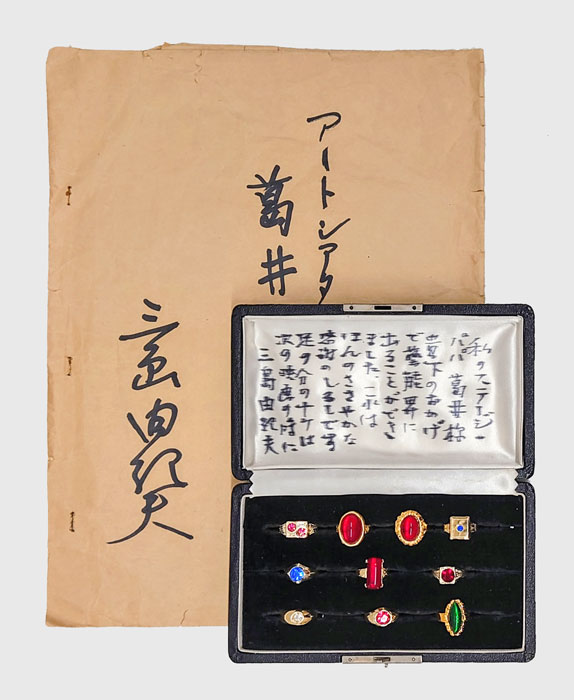 アートシアタ
葛井
三島由紀夫
私のステージ・
パパ 葛井様
貴下のおかげ
で藝能界に
出ることができ
ました。これは
ほんのささやかな
感謝のしるしです
足の分の十ケは
次の映画の時に
三島由紀夫